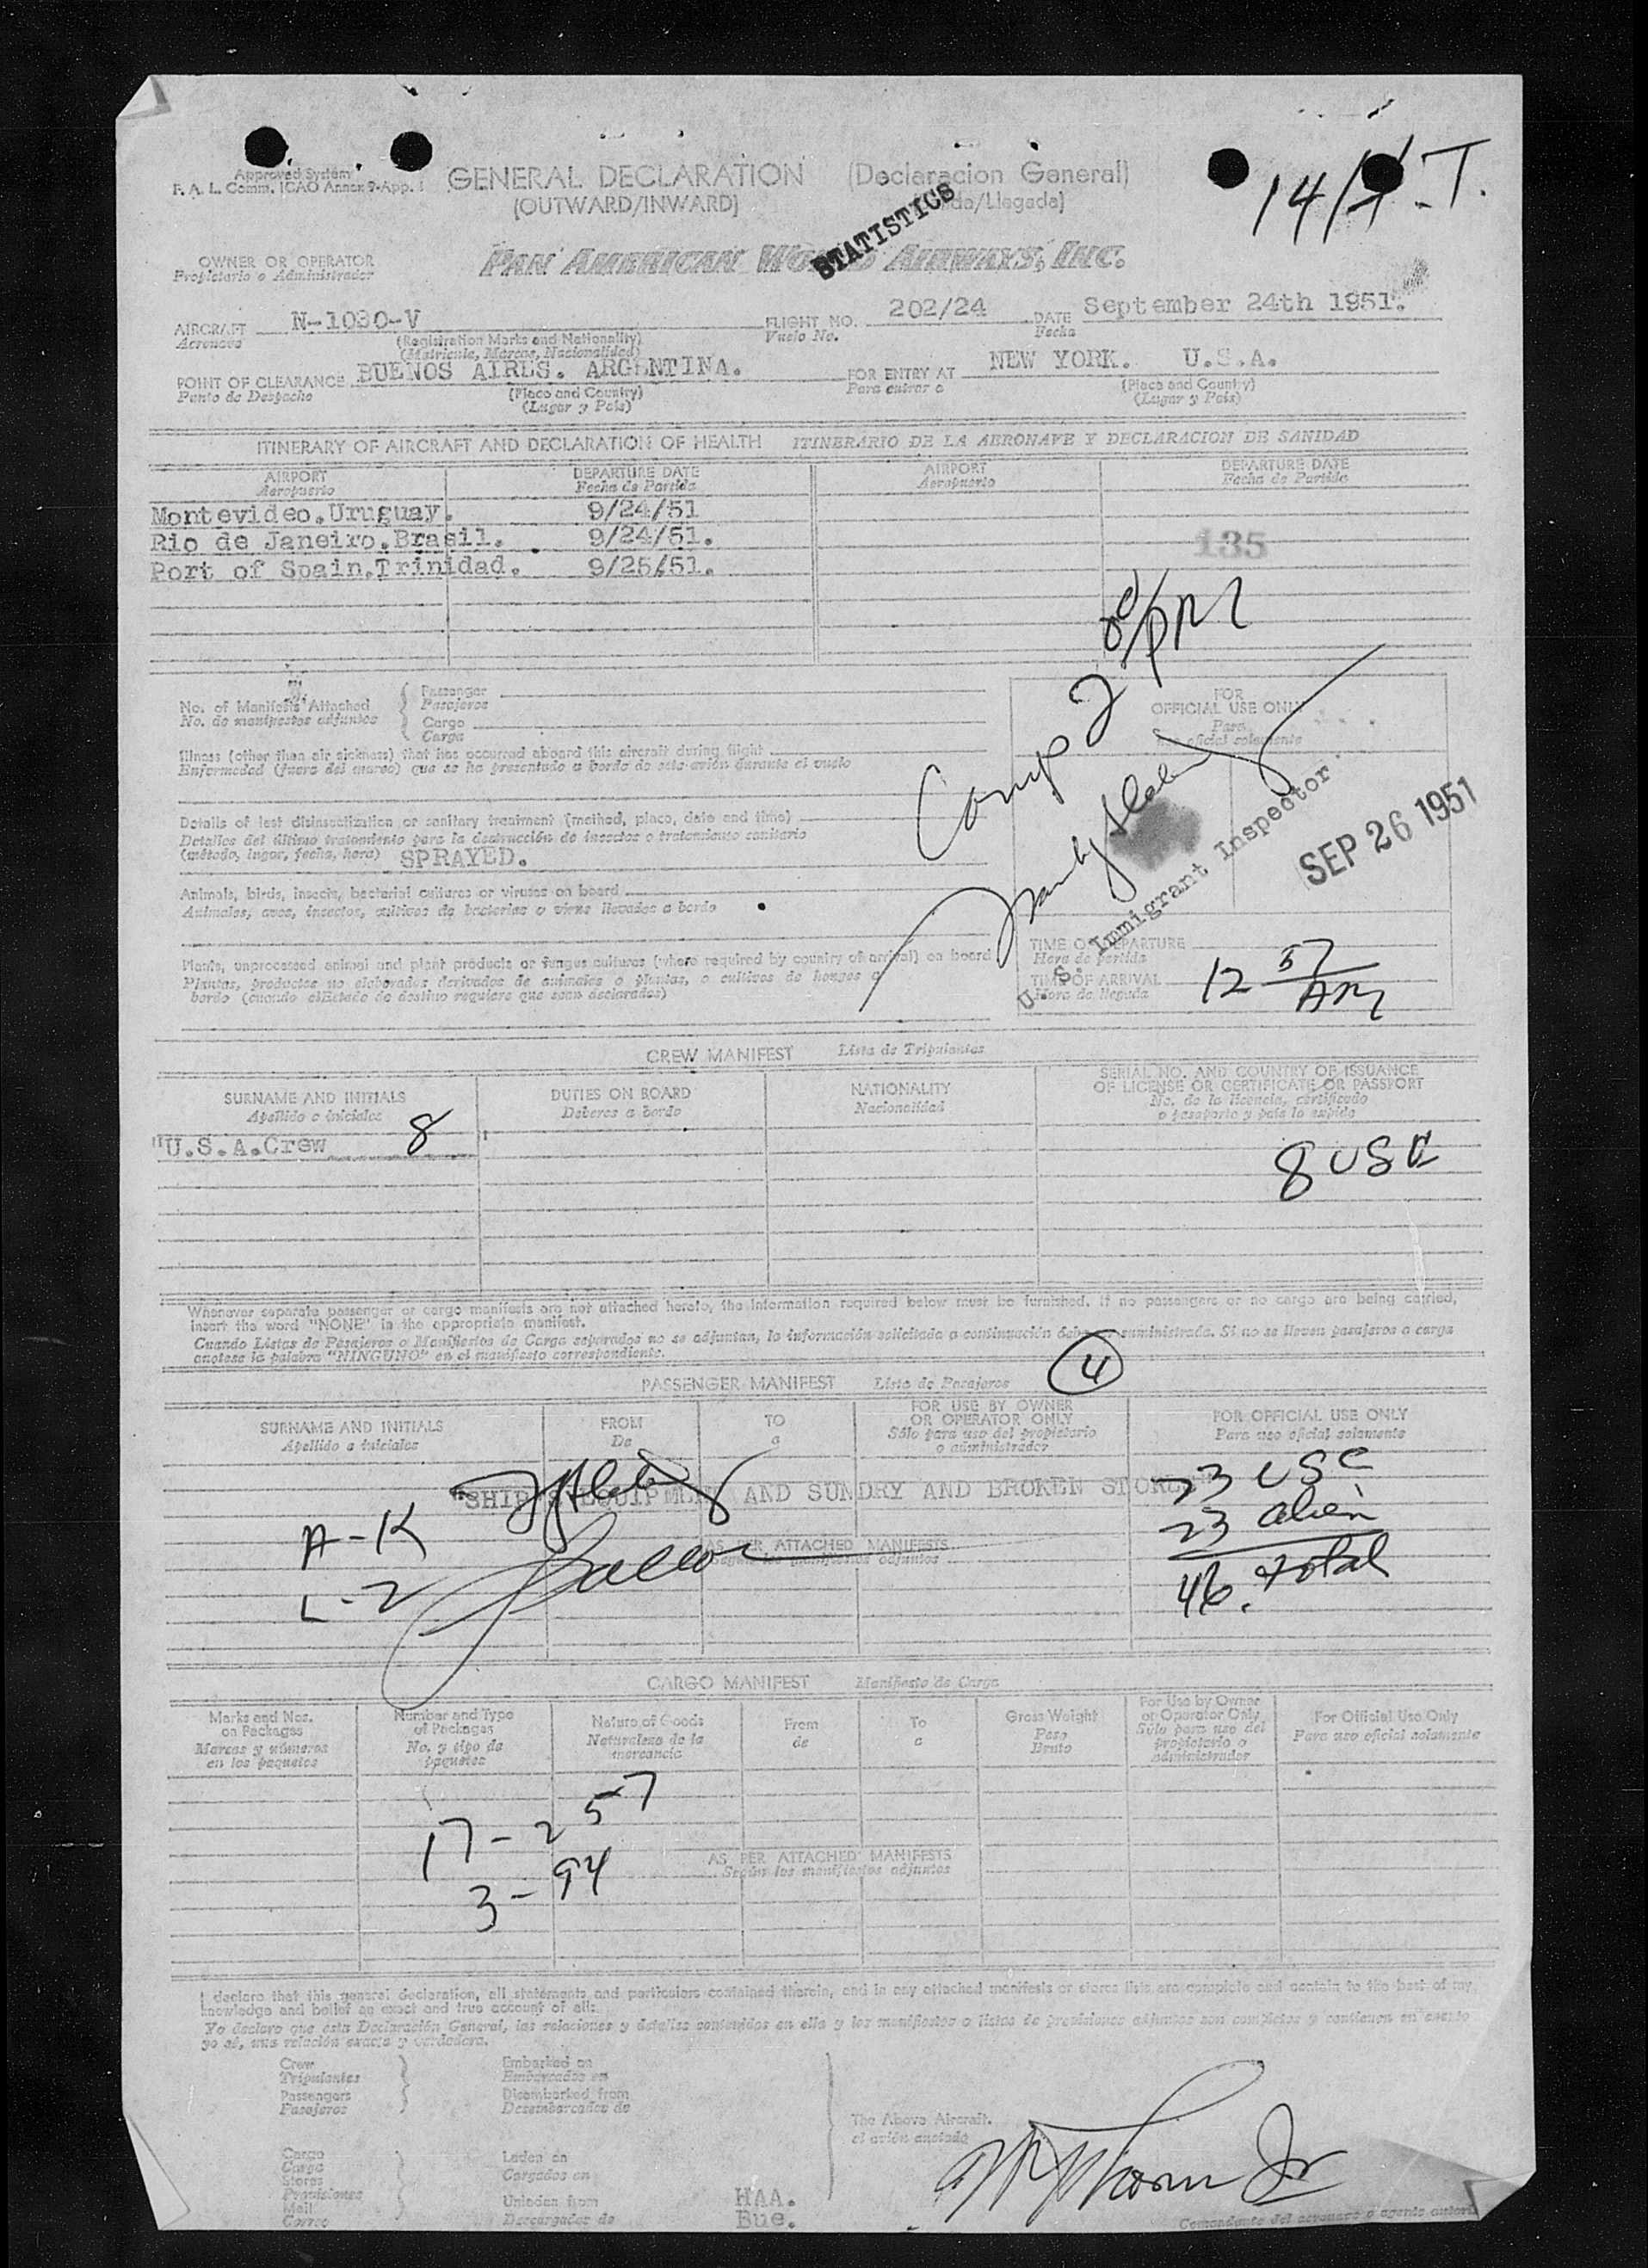 Approved System
F. A. L. Comm. ICAO Annex 9-App. 1
GENERAL DECLARATION (Declaracion General)
(OUTWARD/INWARD)
STATISTICS
14/ T.
OWNER OR OPERATOR
Propietario o Administrador
PAN AMERICAN WORLD AIRWAYS, INC.
AIRCRAFT N-1030-V FLIGHT NO. 202/24 DATE September 24th 1951.
Aeronave (Registration Marks and Nationality) Vuelo No. Fecha
(Matricula, Marcas, Nacionalidad)
POINT OF CLEARANCE BUENOS AIRES. ARGENTINA. FOR ENTRY AT NEW YORK. U.S.A.
Punto de Despacho (Place and Country) Para entrar a (Place and Country)
(Lugar y País) (Lugar y País)
ITINERARY OF AIRCRAFT AND DECLARATION OF HEALTH ITINERARIO DE LA AERONAVE Y DECLARACION DE SANIDAD
AIRPORT DEPARTURE DATE AIRPORT DEPARTURE DATE
Aeropuerto Fecha de Partida Aeropuerto Fecha de Partida
Montevideo.Uruguay. 9/24/51
Rio de Janeiro.Brasil. 9/24/51.
135
Port of Spain.Trinidad. 9/25/51.
No. of Manifests Attached
No. de manifiestos adjuntos
Passenger
Pasajeros
Cargo
Carga
FOR
OFFICIAL USE ONLY
Para
oficial solamente
Comp 2
Illness (other than air sickness) that has occurred aboard this aircraft during flight
Enfermedad (fuera del mareo) que se ha presentado a bordo de este avión durante el vuelo
Details of last disinsectization or sanitary treatment (method, place, date and time)
Detalles del último tratamiento para la destrucción de insectos o tratamiento sanitario
(método, lugar, fecha, hora) SPRAYED.
U. S. Immigrant Inspector
SEP 26 1951
Animals, birds, insects, bacterial cultures or viruses on board
Animales, aves, insectos, cultivos de bacterias o virus llevados a bordo
Plants, unprocessed animal and plant products or fungus cultures (where required by country of arrival) on board
Plantas, productos no elaborados derivados de animales o plantas, o cultivos de hongos a
bordo (cuando el Estado de destino requiere que sean declarados)
TIME OF DEPARTURE
Hora de partida
TIME OF ARRIVAL 12 57 AM
Hora de llegada
CREW MANIFEST Lista de Tripulantes
SURNAME AND INITIALS DUTIES ON BOARD NATIONALITY SERIAL NO. AND COUNTRY OF ISSUANCE
OF LICENSE OR CERTIFICATE OR PASSPORT
Apellido e iniciales Deberes a bordo Nacionalidad No. de la licencia, certificado
o pasaporte y país lo expide
"U.S.A.Crew 8
8 USC
Whenever separate passenger or cargo manifests are not attached hereto, the information required below must be furnished. If no passengers or no cargo are being carried,
insert the word "NONE" in the appropriate manifest.
Cuando Listas de Pasajeros o Manifiestos de Carga separados no se adjuntan, la información solicitada a continuación debe ser suministrada. Si no se llevan pasajeros o carga
anotese la palabra "NINGUNO" en el manifiesto correspondiente.
PASSENGER MANIFEST Lista de Pasajeros 4
SURNAME AND INITIALS FROM TO FOR USE BY OWNER
OR OPERATOR ONLY FOR OFFICIAL USE ONLY
Apellido e iniciales De a Sólo para uso del propietario
o administrador Para uso oficial solamente
23 USC
"SHIP'S EQUIPMENT AND SUNDRY AND BROKEN STORES
A-K
23 alien
AS PER ATTACHED MANIFESTS
Según los manifiestos adjuntos
L-Z
46. total
CARGO MANIFEST Manifiesto de Carga
Marks and Nos.
on Packages
Marcas y números
en los paquetes
Number and Type
of Packages
No. y tipo de
paquetes
Nature of Goods
Naturaleza de la
mercancia
From
de
To
a
Gross Weight
Peso
Bruto
For Use by Owner
or Operator Only
Sólo para uso del
propietario o
administrador
For Official Use Only
Para uso oficial solamente
17 - 257
3 - 94
AS PER ATTACHED MANIFESTS
Según los manifiestos adjuntos
I declare that this general declaration, all statements and particulars contained therein, and in any attached manifests or stores lists are complete and contain to the best of my
knowledge and belief an exact and true account of all:
Yo declaro que esta Declaración General, las relaciones y detalles contenidos en ella y los manifiestos o listas de provisiones adjuntos son completos y contienen en cuanto
yo sé, una relación exacta y verdadera.
Crew
Tripulantes
Passengers
Pasajeros
Embarked on
Embarcados en
Disembarked from
Desembarcados de
The Above Aircraft.
el avión anotado
Cargo
Carga
Stores
Provisiones
Mail
Correo
Laden on
Cargados en
Unladen from
Descargados de
HAA.
Bue.
Comandante del aeronave o agente autori